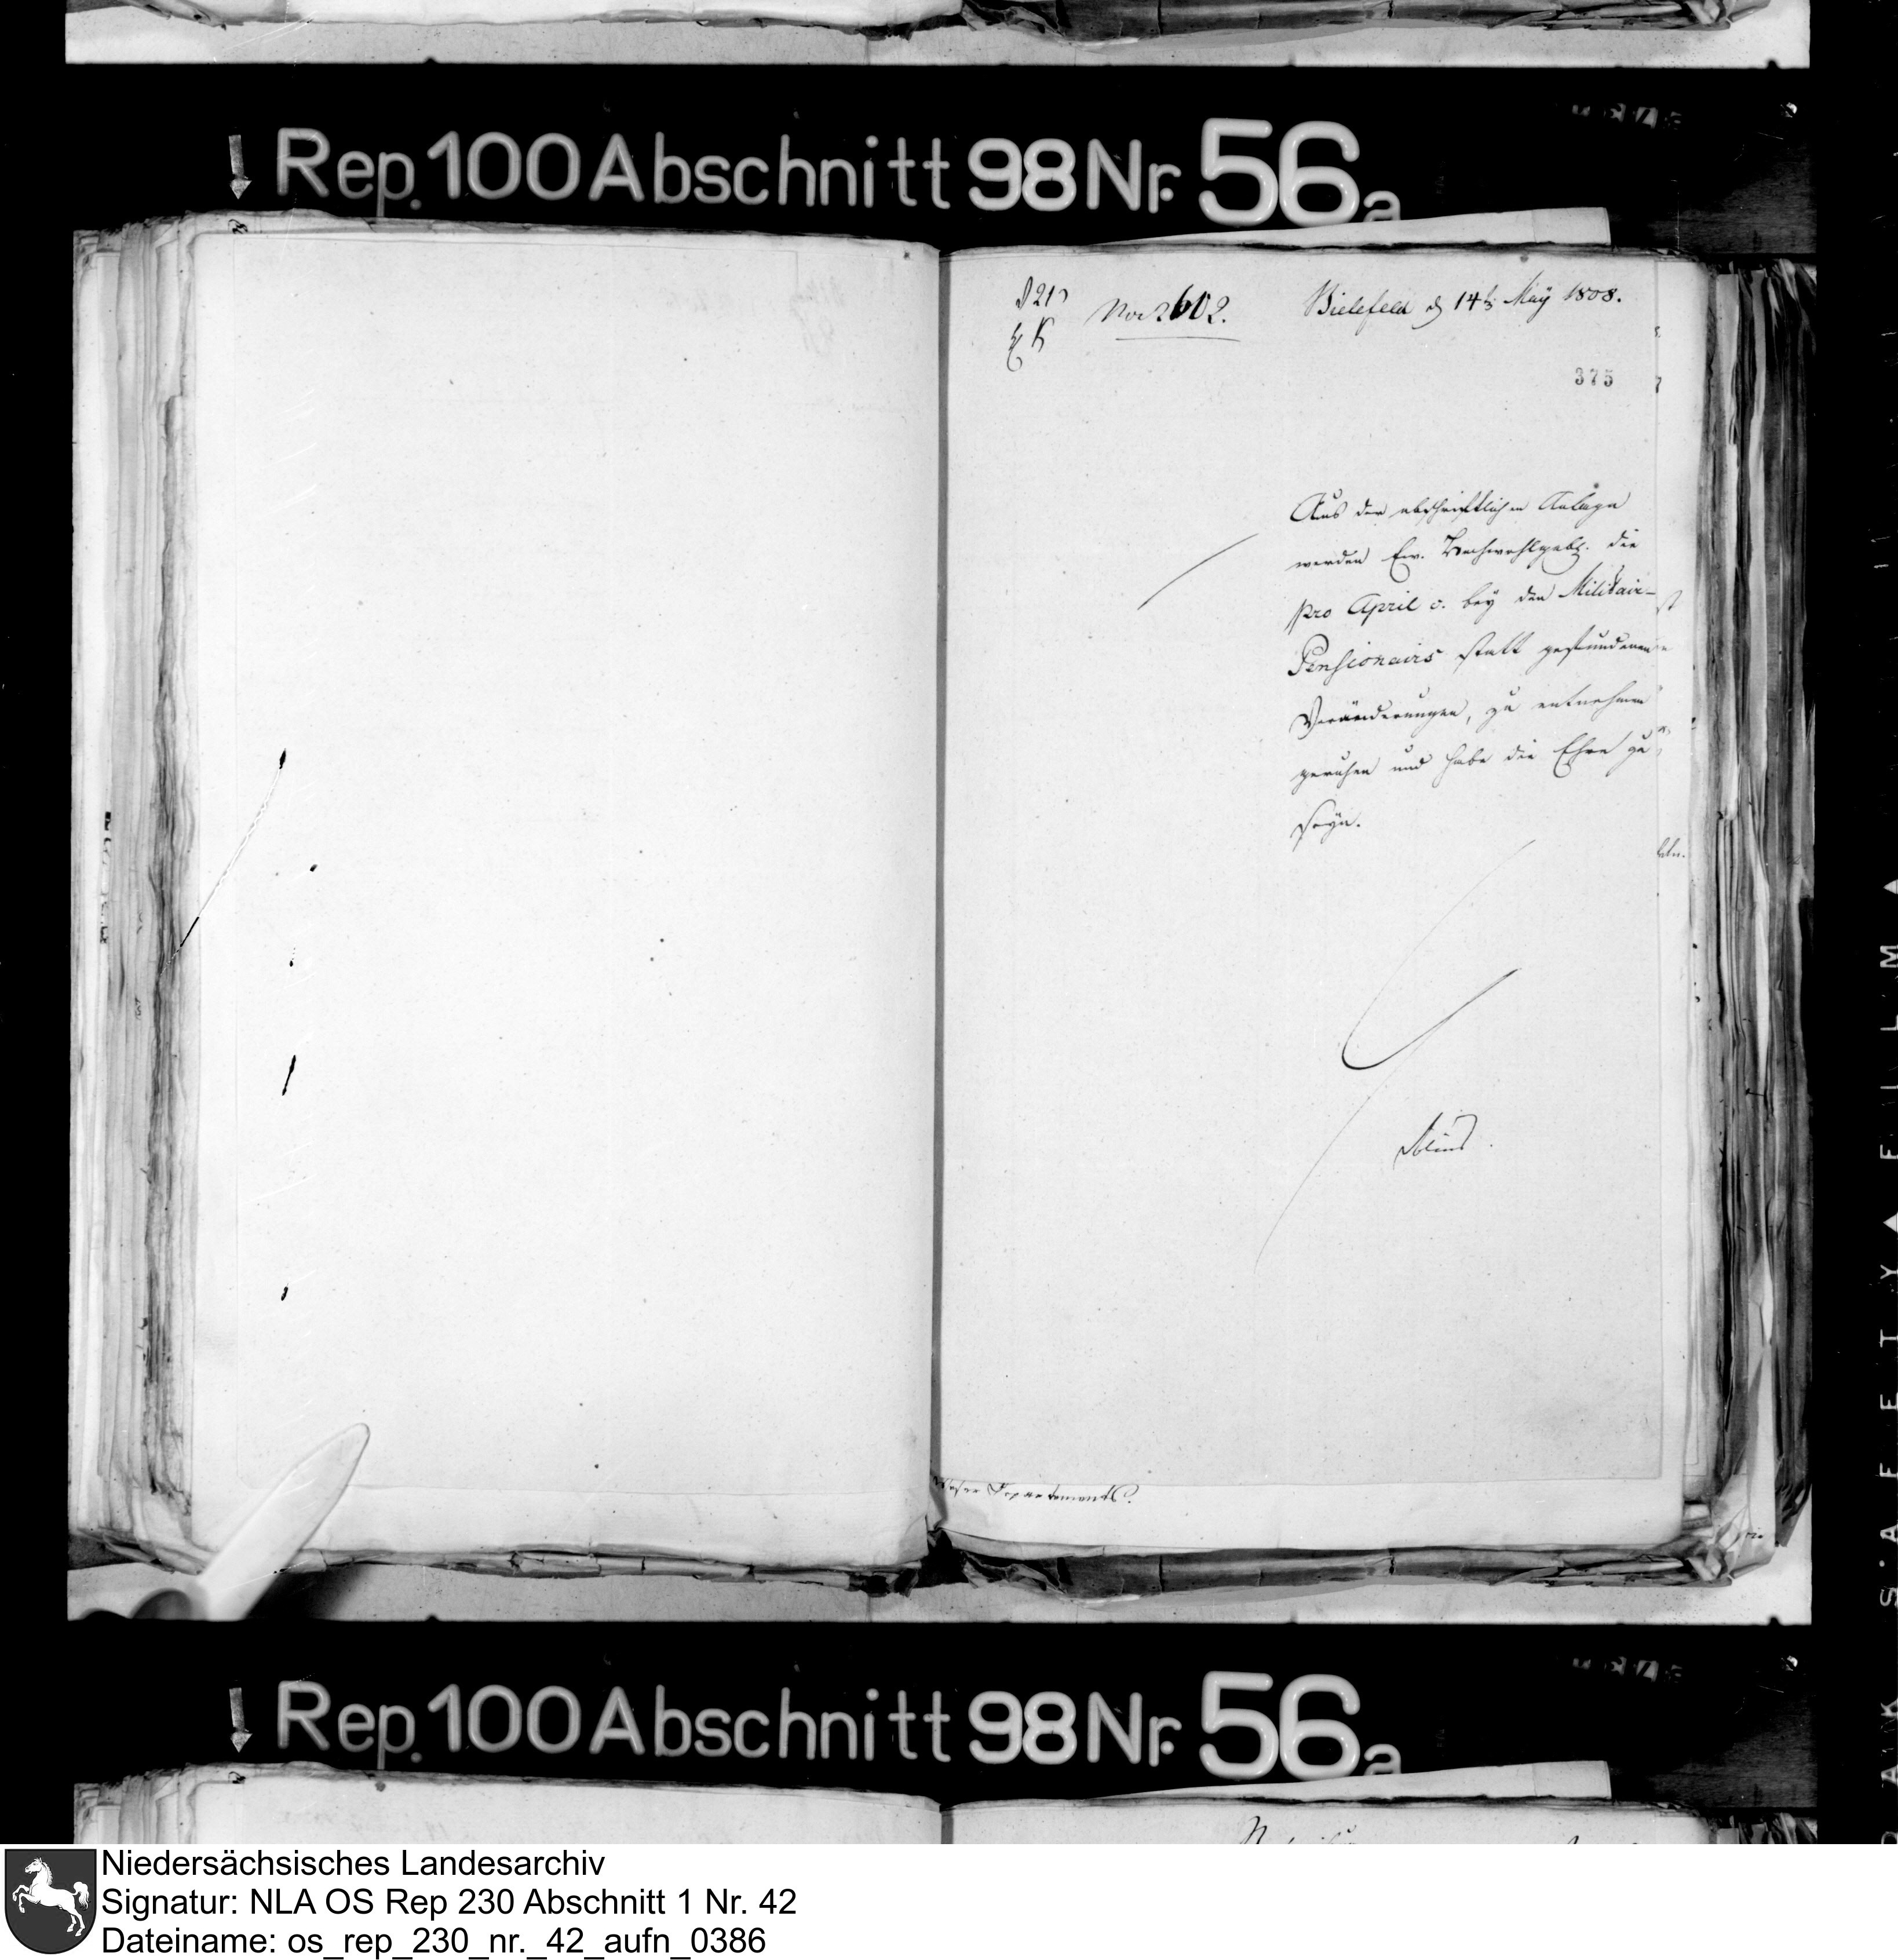 Rep. 100 Abschnitt 98 Nr. 56a
No 2602.
Bielefeld d 14t May 1808.
375
Aus der abschriftlichen Anlage
werden Ew. Hochwohlgeb. die
pro April c. bey den Militair-
Pensionairs statt gefundenen
Veränderungen, zu entnehmen
geruhen und habe die Ehre zu
seyn.
Rep. 100 Abschnitt 98 Nr. 56a
Niedersächsisches Landesarchiv
Signatur: NLA OS Rep 230 Abschnitt 1 Nr. 42
Dateiname: os_rep_230_nr._42_aufn_0386